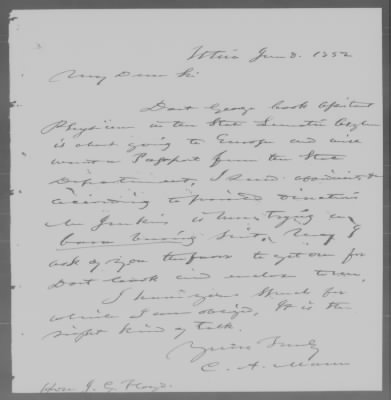 Utica Jan 8. 1852
My Dear Sir
Doct George Cook Assistant
Physician in the State Lunatic Asylum
is about going to Europe and will
want a Passport from the State
Department, I send
according to printed Directions
Mr Jenkins is trying a
Suit, May I
ask of you the favor to get one for
Doct Cook and enclose them.
I have your Speech for
which I am obliged, It is the
right kind of talk.
Yours Truly
C. A. Mann
Hon J. G. Floyd.